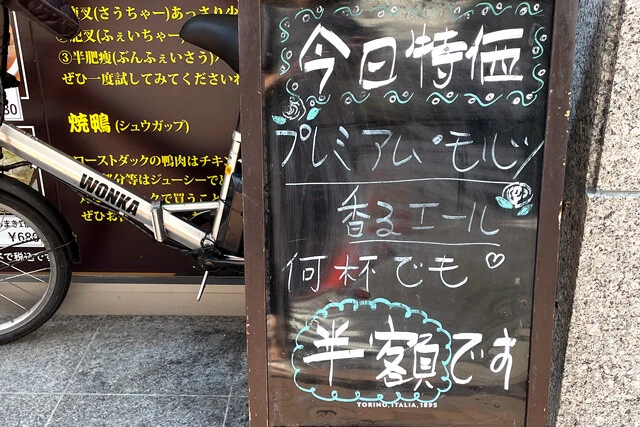 叉(さうちゃー)あっさり
②肥叉(ふぇいちゃー
③半肥瘦(ぶんふぇいさう)
ぜひ一度試してみてくださいね
焼鴨(シュウガップ)
ローストダックの鴨肉はチキ
部分等はジューシーでと
クで買うこと
ぜひお
WONKA
まき
¥680
で税込です
今日特価
プレミアム・モルツ
香るエール
何杯でも♡
半額です
TORINO, ITALIA, 1895